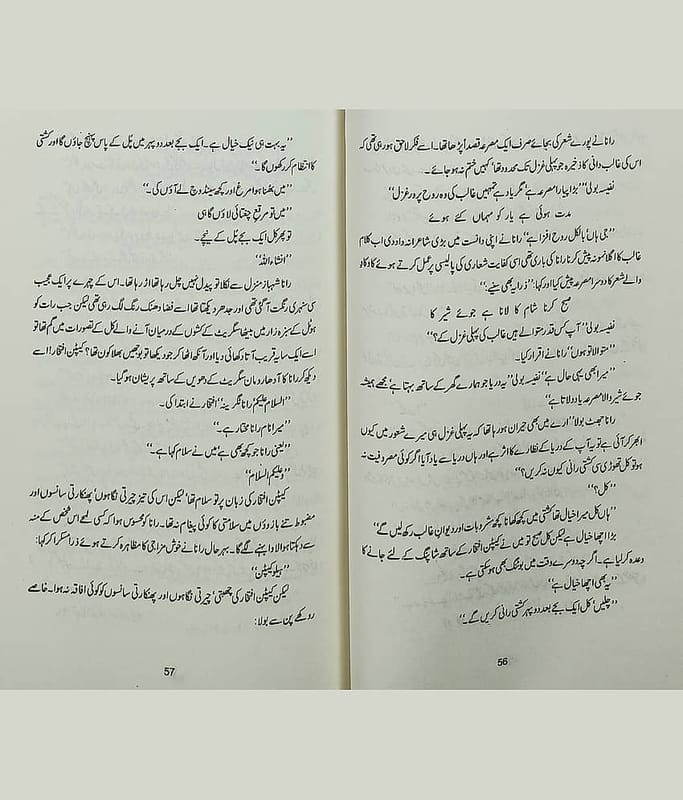 رانا نے پورے شعر کی بجائے صرف ایک مصرعہ قصداً پڑھا تھا۔ اسے فکر لاحق ہو رہی تھی کہ
اس کی غالب دانی کا ذخیرہ جو پہلی غزل تک محدود تھا' کہیں ختم نہ ہو جائے۔
نفیسہ بولی''' بڑا پیارا مصرعہ ہے' مگر یاد ہے تمہیں غالب کی وہ روح پرور غزل''
مدت ہوئی ہے یار کو مہماں کئے ہوئے
''جی ہاں' بالکل روح افزا ہے'' رانا نے اپنی دانست میں بڑی شاعرانہ داد دی اب کلام
غالب کا اگلا نمونہ پیش کرنا رانا کی باری تھی اسی کفایت شعاری کی پالیسی پر عمل کرتے ہوئے کاوکاو
والے شعر کا دوسرا مصرعہ پیش کیا اور کہا: ''ذرا یہ بھی سنیے:''
صبح کرنا شام کا لانا ہے جوئے شیر کا
نفیسہ بولی''' آپ کس قدر متوالے ہیں غالب کی پہلی غزل کے؟''
''متوالا تو ہوں'' رانا نے اقرار کیا۔
''میرا بھی یہی حال ہے'' نفیسہ بولی'' یہ دریا جو ہمارے گھر کے ساتھ بہتا ہے' مجھے ہمیشہ
جوئے شیر والا مصرعہ یاد دلاتا ہے''
رانا جھٹ بولا'' ارے میں بھی حیران ہو رہا تھا کہ یہ پہلی غزل ہی میرے شعور میں کیوں
ابھر کر آئی ہے تو یہ آپ کے دریا کے نظارے کا اثر ہے اور ہاں دریا سے یاد آیا اگر کوئی مصروفیت نہ
ہو تو کل تھوڑی سی کشتی رانی کیوں نہ کریں؟''
''کل؟''
''ہاں کل میرا خیال تھا کشتی میں کچھ کھانا' کچھ مشروبات اور دیوان غالب رکھ لیں گے''
بڑا اچھا خیال ہے لیکن کل صبح تو میں نے کیپٹن افتخار کے ساتھ شاپنگ کے لئے جانے کا
وعدہ کر لیا ہے۔ اگر چہ دوسرے وقت میں بوٹنگ بھی ہو سکتی ہے۔
''یہ بھی اچھا خیال ہے''
''چلیں' کل ایک بجے بعد دوپہر کشتی رانی کریں گے۔''
56
''یہ بہت ہی نیک خیال ہے۔ ایک بجے بعد دوپہر میں پُل کے پاس پہنچ جاؤں گا اور کشتی
کا انتظام کر رکھوں گا۔''
''میں بھنا ہوا مرغ اور کچھ سینڈوچ لے آؤں گی۔''
''میں تو مرقع چغتائی لاؤں گا ہی
تو پھر کل ایک بجے پُل کے نیچے۔
''انشاءاللہ''
رانا شہباز منزل سے نکلا تو پیدل نہیں چل رہا تھا' اڑ رہا تھا۔ اس کے چہرے پر ایک عجیب
سی سنہری رنگت آ گئی تھی اور جدھر دیکھتا تھا' اسے فضا دھنک رنگ لگ رہی تھی لیکن جب رات کو
ہوٹل کے سبزہ زار میں بیٹھا سگریٹ کے کشوں کے درمیان آنے والے کل کے تصورات میں گم تھا تو
اسے ایک سایہ قریب آتا دکھائی دیا اور آنکھ اٹھا کر جو دیکھا تو بوجھیں بھلا کون تھا؟ کیپٹن افتخار! اسے
دیکھ کر رانا کا آدھا رومان سگریٹ کے دھویں کے ساتھ پریشان ہو گیا۔
''السلام علیکم' رانا نگریز'' افتخار نے ابتدا کی۔
''میرا نام رانا مختار ہے۔''
''یعنی رانا جو کچھ بھی ہے' میں نے سلام کہا ہے۔''
''وعلیکم السلام''
کیپٹن افتخار کی زبان پر تو سلام تھا' لیکن اس کی تیز چیرتی نگاہوں' پھنکارتی سانسوں اور
مضبوط تنے بازوؤں میں سلامتی کا کوئی پیغام نہ تھا۔ رانا کو محسوس ہوا کہ کسی لمحے اس شخص کے منہ
سے دہکتا ہوا لاوا بہنے لگے گا۔ بہرحال رانا نے خوش مزاجی کا مظاہرہ کرتے ہوئے ذرا مسکرا کر کہا:
''ہیلو کیپٹن''
لیکن کیپٹن افتخار کی چھبتی' چیرتی نگاہوں اور پھنکارتی سانسوں کو کوئی افاقہ نہ ہوا۔ خاصے
روکھے پن سے بولا:
57